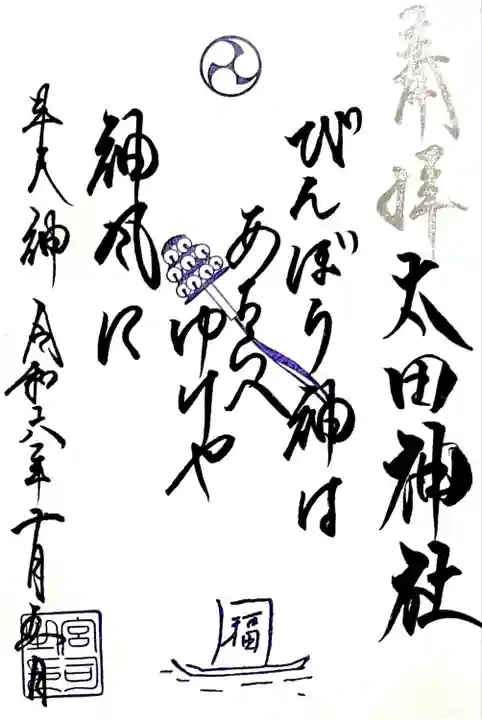 奉拝
太田神社
びんぼう神は
あち久
ゆけや
神風に
牛天神
令和六年十月五日
福
宮司